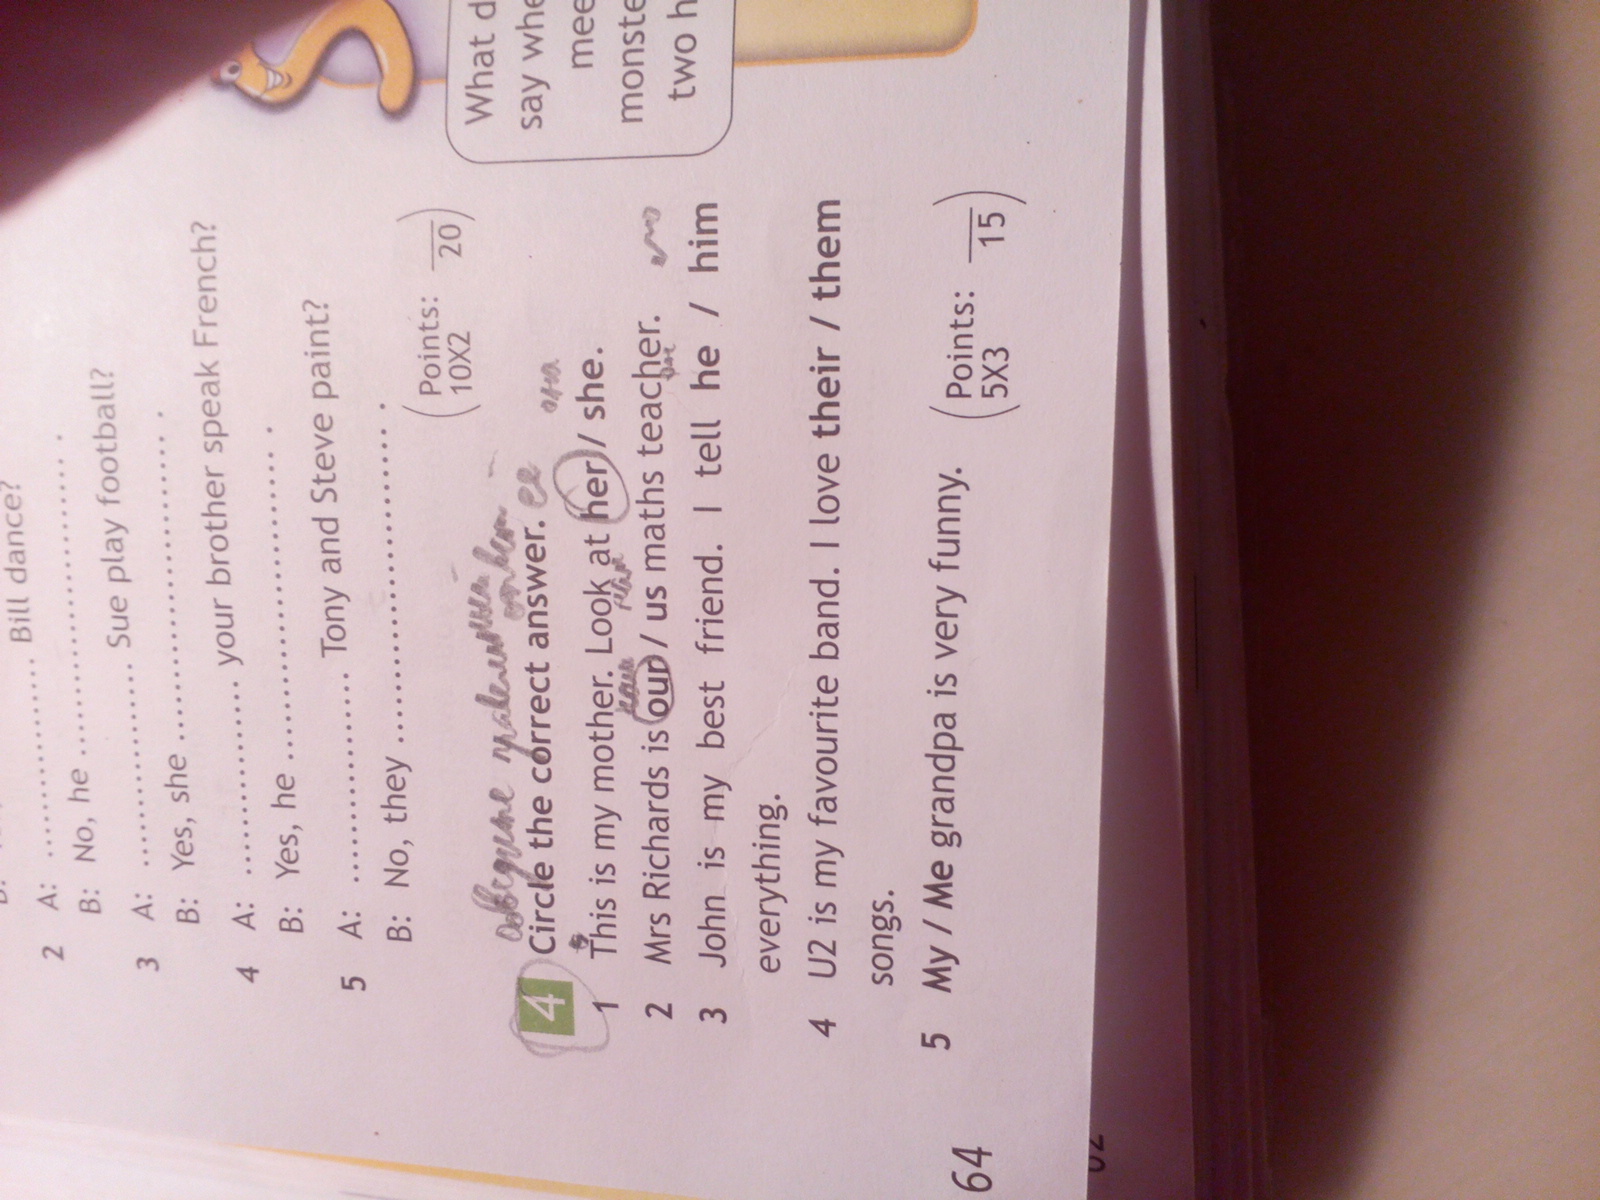 Bill dance?
2 A: .................... Bill dance?
B: No, he .................... .
3 A: .................... Sue play football?
B: Yes, she .................... .
4 A: .................... your brother speak French?
B: Yes, he .................... .
5 A: .................... Tony and Steve paint?
B: No, they .................... .
(Points: ___
10X2 20)
обведите
4 Circle the correct answer. ее она
1 This is my mother. Look at her / she.
2 Mrs Richards is our / us maths teacher.
3 John is my best friend. I tell he / him
everything.
4 U2 is my favourite band. I love their / them
songs.
5 My / Me grandpa is very funny. (Points: ___
5X3 15)
What d
say whe
mee
monste
two h
64
62